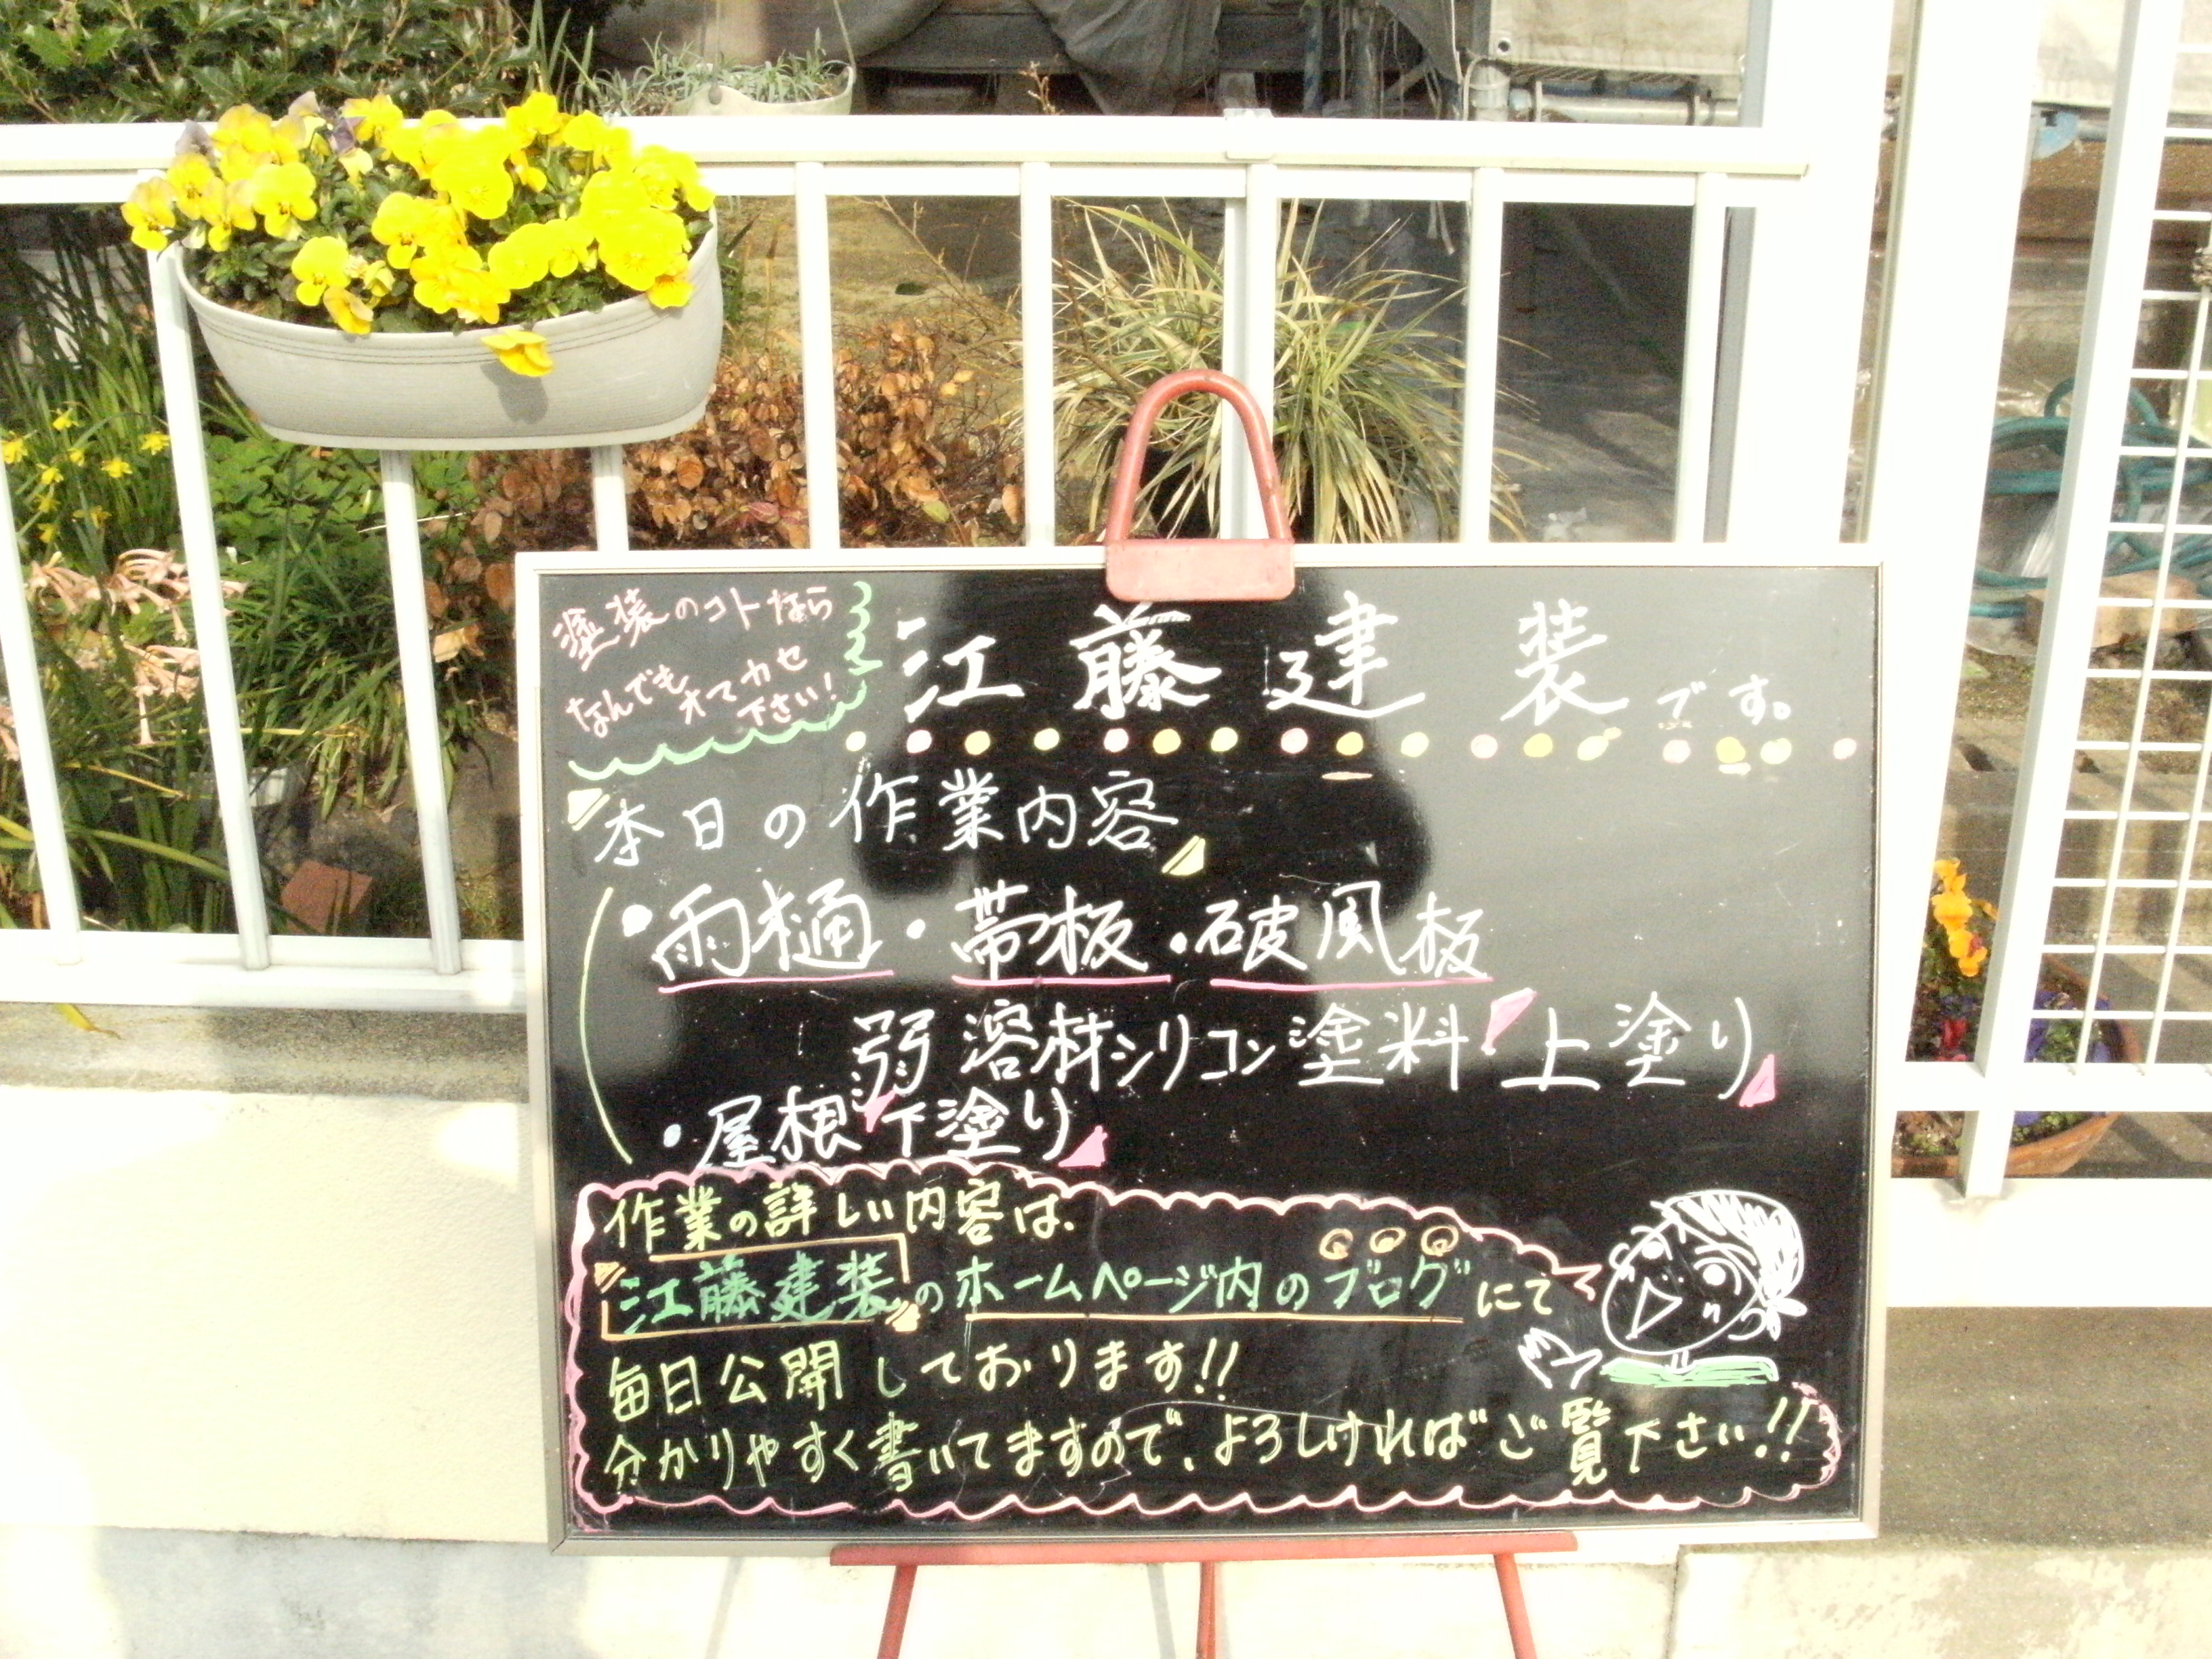 塗装のコトなら
なんでも
オマカセ
下さい!
江藤建装です。
本日の作業内容
・雨樋・帯板・破風板
弱溶材シリコン塗料上塗り
・屋根下塗り
作業の詳しい内容は、
江藤建装のホームページ内のブログにて
毎日公開しております!!
分かりやすく書いてますので、よろしければご覧下さい!!